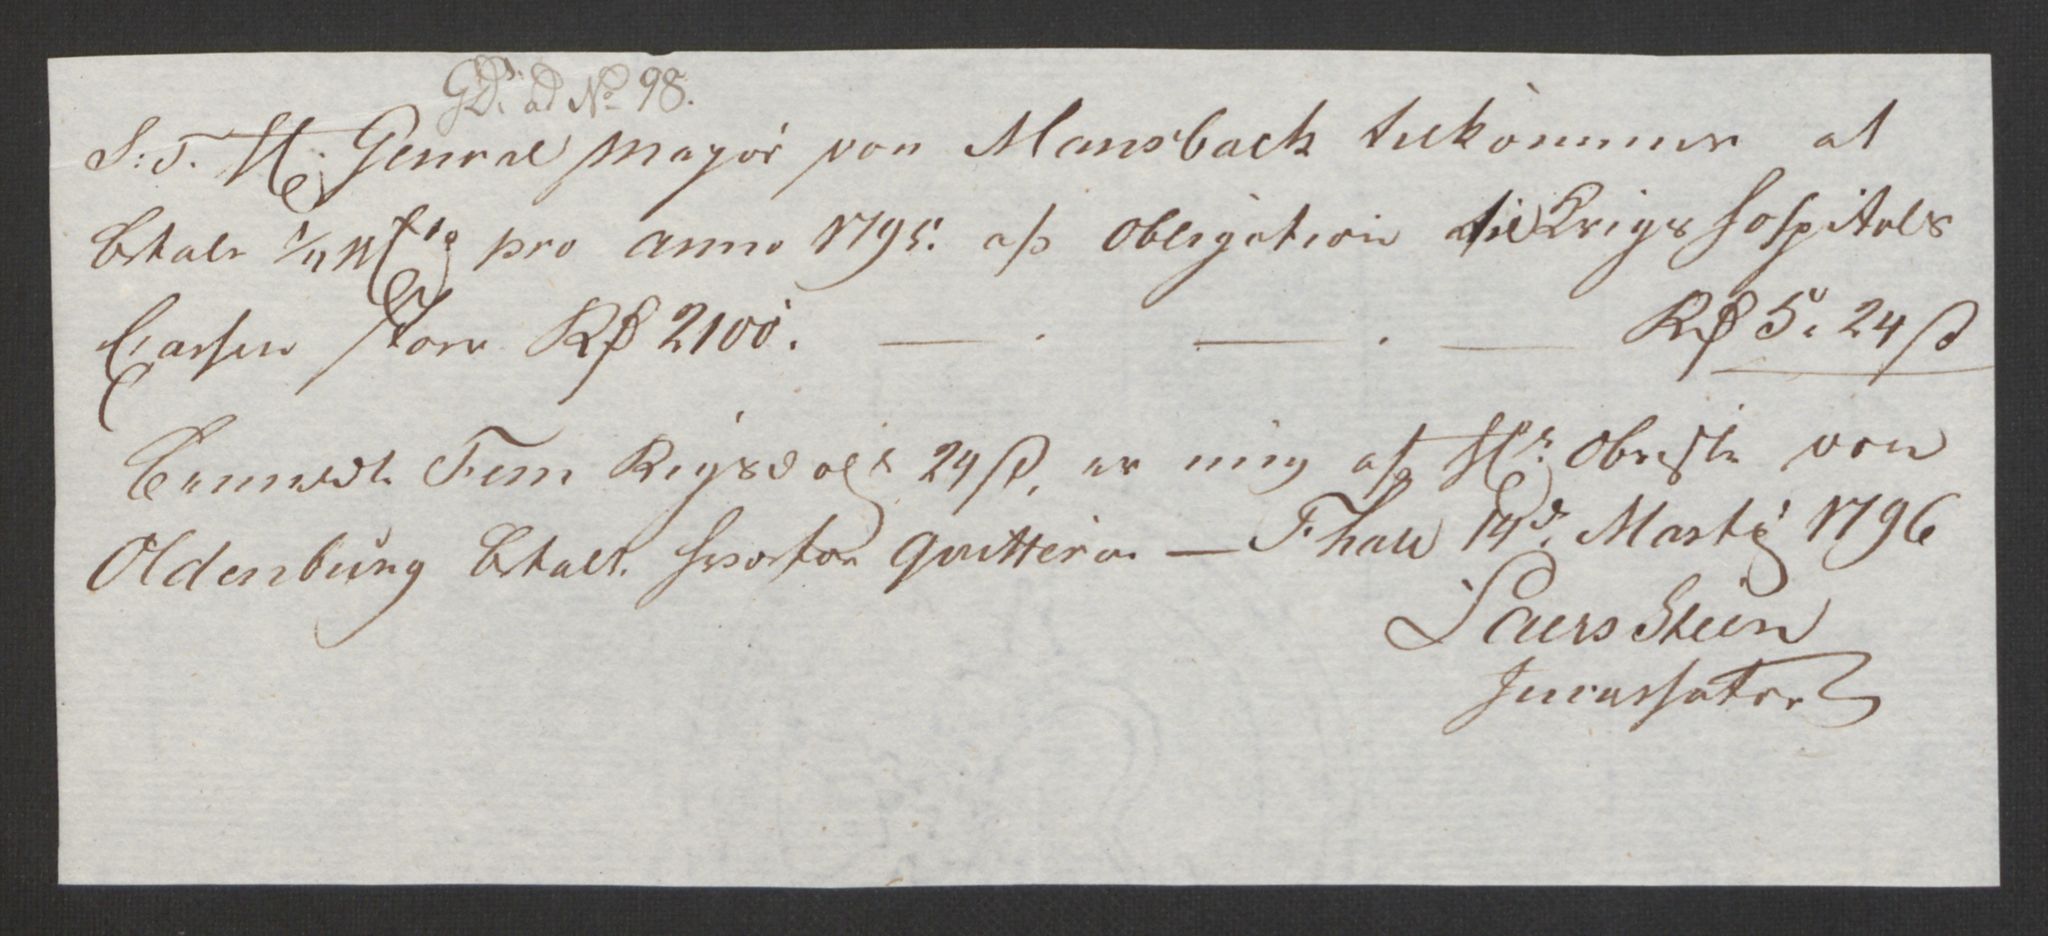 GD: ad No 98.
S: T. Hr. General Mayor von Mansback tilkommer at
betale 1/4 pro anno 1795. af Obligation til Krigs Hospitals
Cassen stor Rd 2100. — . — . — Rd 5. 24 s
Bemeldte Fem Rigsdlr 24 s, er mig af Hr. Obriste von
Oldenburg betalt hvorfor qvitterer — Fhald 14d. Martii 1796
Laers Steen